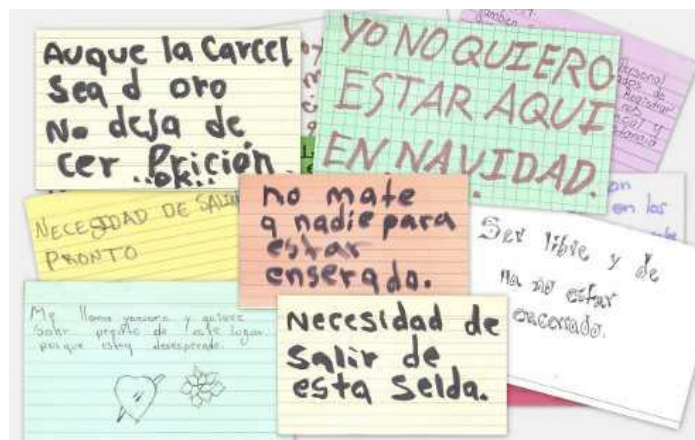 Auque la Carcel
Sea d oro
No deja de
cer Prición
..ok..
YO NO QUIERO
ESTAR AQUI
EN NAVIDAD.
Personal
NECESIDAD DE SALIR
PRONTO
no mate
a nadie para
estar
enserado.
Ser libre y de
ya no estar
encerrado.
en los
Me llama y quiero
Salir pronto de este lugar.
porque estoy desesperado.
Necesidad de
Salir de
esta Selda.